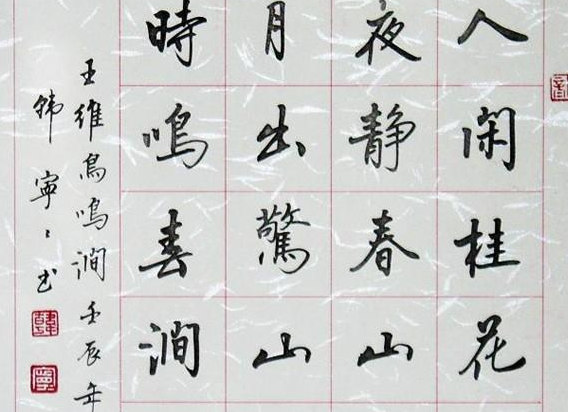 人闲桂花
夜静春山
月出驚山
時鳴春涧
王維鳥鳴涧壬辰年
韩寧〻书